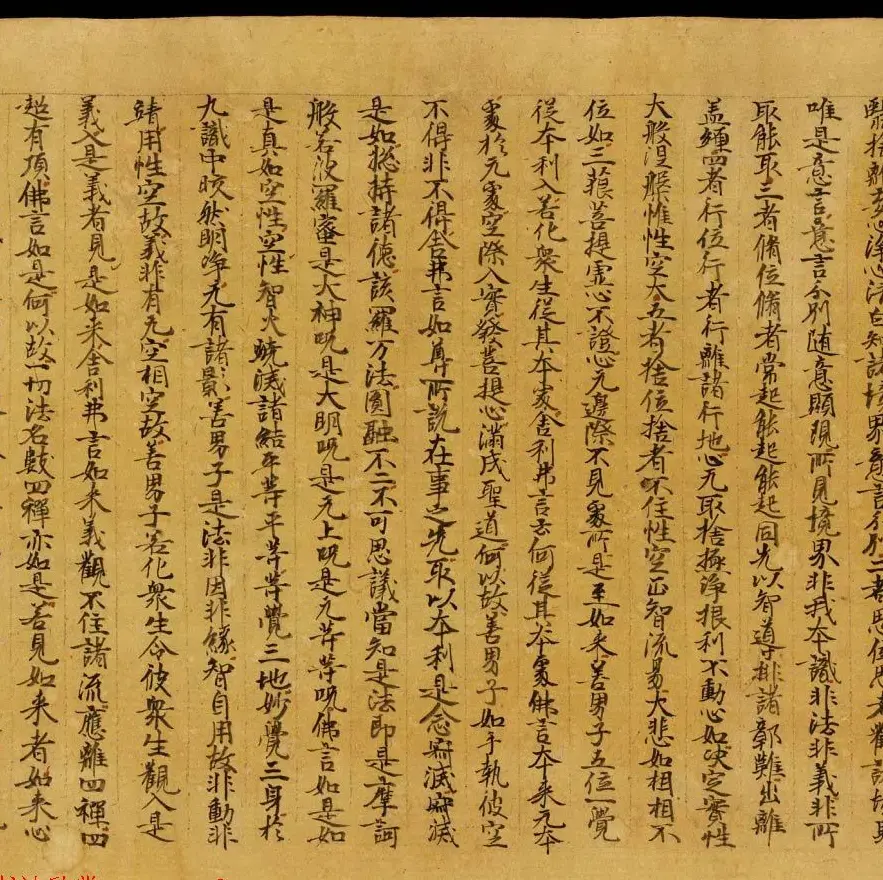 境界意言分別二者思位思者觀諸
唯是意言意言分別随意顯現所見境界非我本識非法非義非所
取能取三者脩位脩者常起能起能起同先以智導排諸鄣難出離
盖纏四者行位行者行離諸行地心无取捨極淨根利不動心如决定實性
大般涅槃惟性空大五者捨位捨者不住性空正智流易大悲如相相不
位如三藐菩提虛心不證心无邊際不見處所是至如来善男子五位一覺
従本利入若化衆生従其本處舍利弗言云何従其本處佛言本来无本
處於无處空際入實發菩提心滿成聖道何以故善男子如手執彼空
不得非不得舍弗言如尊所說在事之先取以本利是念寂滅寂滅
是如揔持諸德該羅万法圓融不二不可思議當知是法即是摩訶
般若波羅蜜是大神呪是大明呪是无上呪是无等等呪佛言如是如
是真如空性空性智火燒滅諸結平等平等等覺三地妙覺三身於
九識中皎然明淨无有諸影善男子是法非因非緣智自用故非動非
靖用性空故義非有无空相空故善男子若化衆生令彼衆生觀入是
義入是義者見是如来舍利弗言如来義觀不住諸流應離四禪四
超有頂佛言如是何以故一切法名數四禪亦如是若見如来者如来心